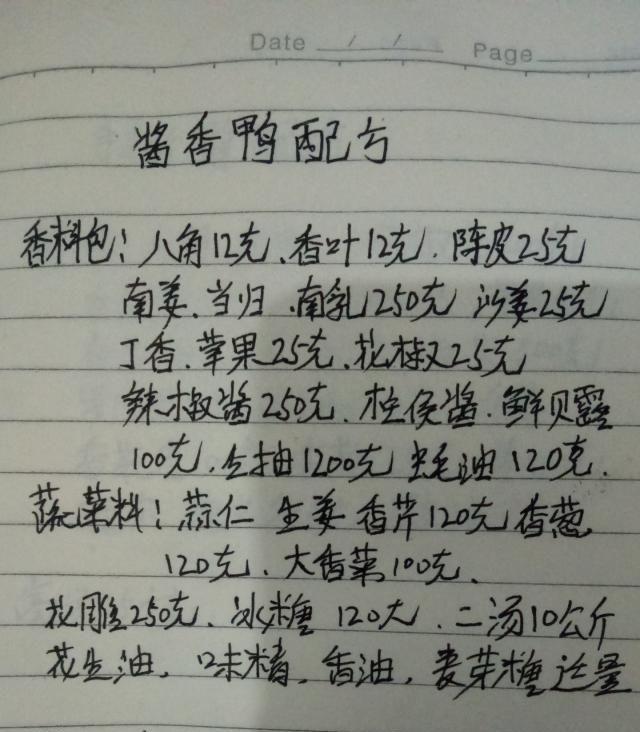 Date / / Page
酱香鸭配方
香料包：八角12克、香叶12克．陈皮25克
南姜、当归、南乳1250克 沙姜25克
丁香、草果25克、花椒25克
辣椒酱250克、柱侯酱．鲜贝露
100克．生抽1200克 蚝油120克．
蔬菜料！蒜仁 生姜 香芹120克 香葱
120克．大香菜100克、
花雕250克．冰糖 120大．二汤10公斤
花生油．味精．香油．麦芽糖适量